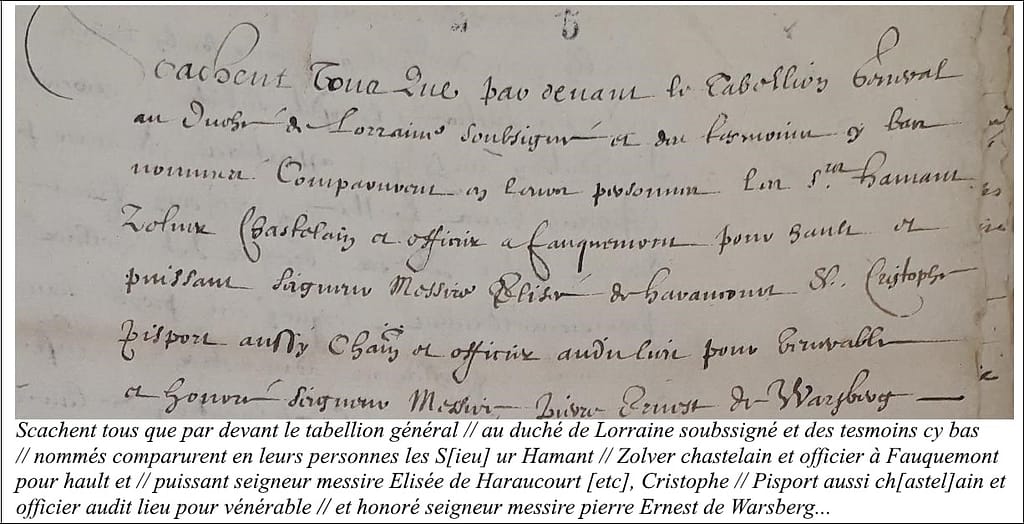 5
Scachent tous que par devant le tabellion general
au duché de Lorraine soubsigné et des tesmoins cy bas
nommés Comparurent en leurs personnes les Srs Hamant
Zolver Chastelain et officier a fauquemont pour hault et
puissant seigneur Messire Elisé de haraucourt &c. Cristophe
Pisport aussy Chãin et officier audit lieu pour venerable
et honoré seigneur Messire Pierre Ernest de Warsberg
Scachent tous que par devant le tabellion général // au duché de Lorraine soubssigné et des tesmoins cy bas
// nommés comparurent en leurs personnes les S[ieu] ur Hamant // Zolver chastelain et officier à Fauquemont
pour hault et // puissant seigneur messire Elisée de Haraucourt [etc], Cristophe // Pisport aussi ch[astel]ain et
officier audit lieu pour vénérable // et honoré seigneur messire pierre Ernest de Warsberg...